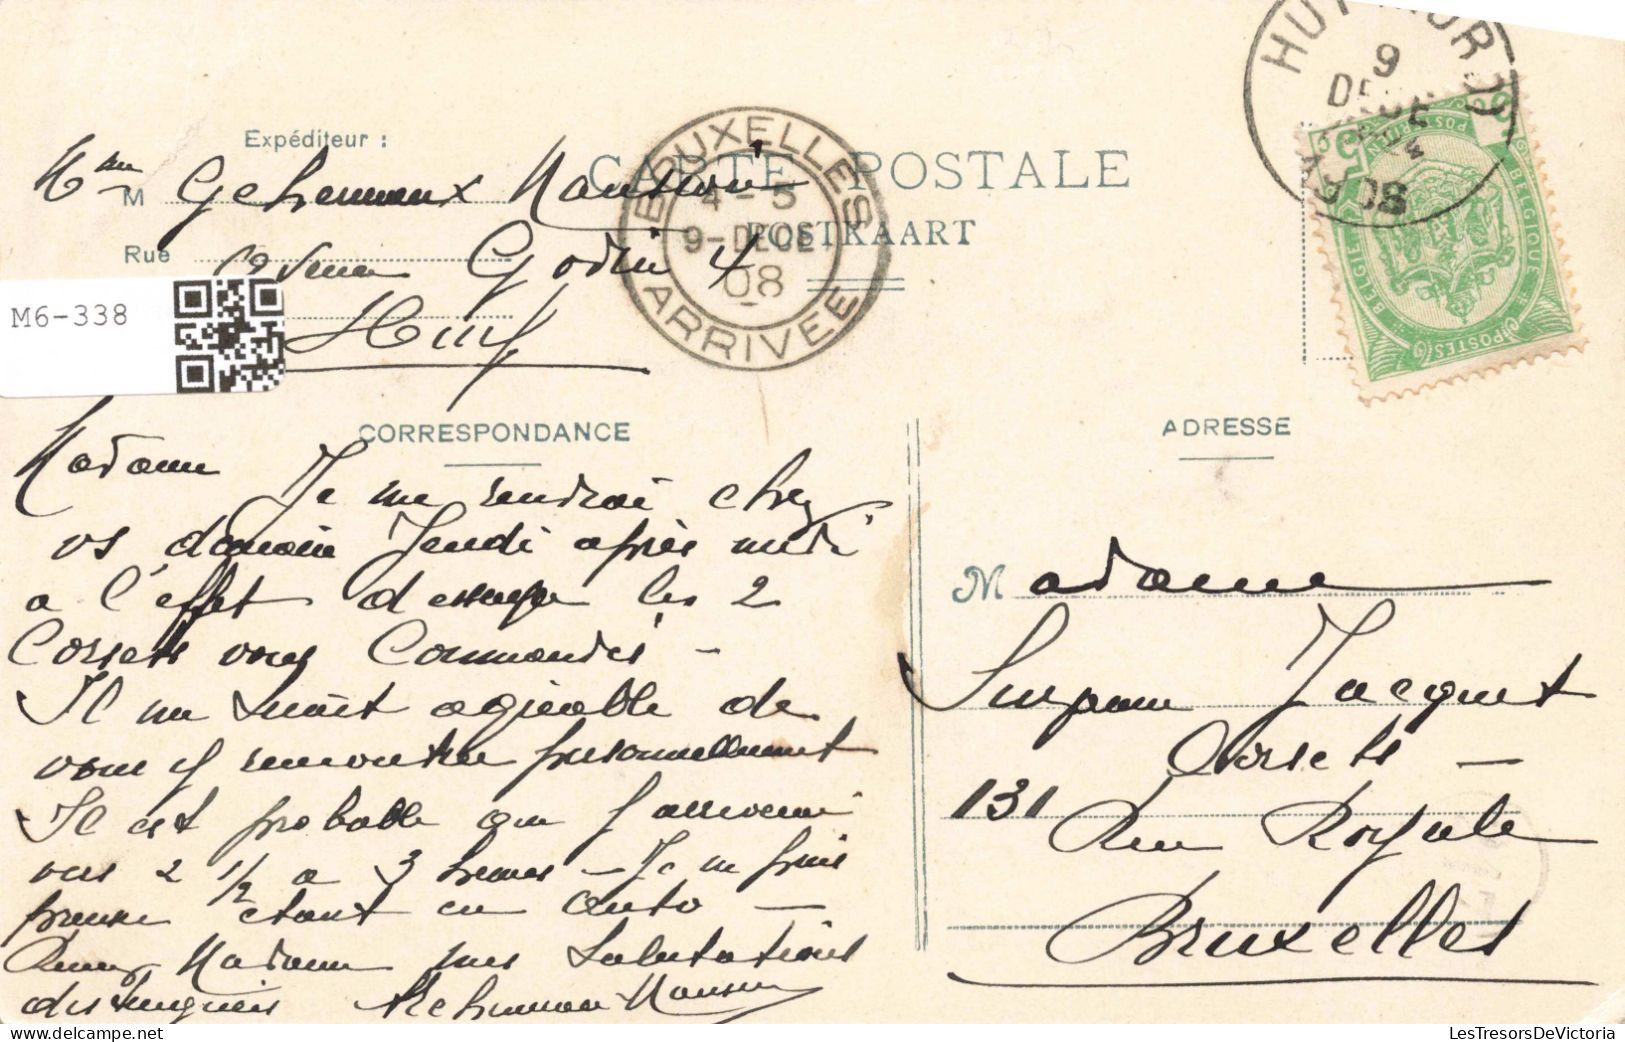 Expéditeur :
Mme
M
Rue
Godin 4
Huy
CARTE POSTALE
POSTKAART
BRUXELLES
4-5
9-DECE
08
ARRIVEE
HUY
9
DECE
08
5
BELGIQUE
BELGIE
POSTES
POSTERIJEN
M6-338
CORRESPONDANCE
Madame
Je me rendrai chez
vs demain Jeudi après midi
a l'effet d'essayer les 2
Corsets vous Commandés -
Il me serait agréable de
vous y rencontrer personnellement
Il est probable que j'arriverai
vers 2 1/2 a 3 heures - Je ne puis
préciser étant en auto -
Madame mes Salutations
distinguées
ADRESSE
Madame
Jacquet
Corsets -
131 Rue Royale
Bruxelles
LesTresorsDeVictoria
delcampe.net